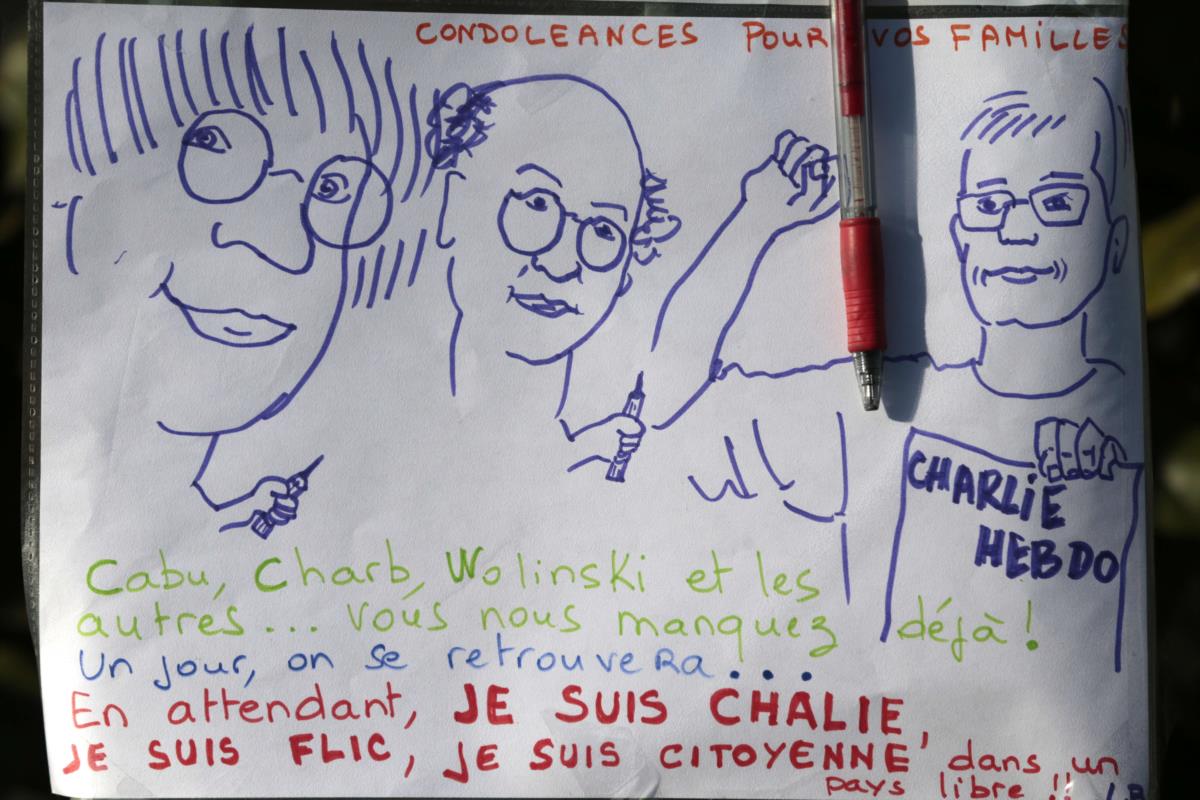 CONDOLEANCES POUR VOS FAMILLES
CHARLIE
HEBDO
Cabu, Charb, Wolinski et les
autres... vous nous manquez déjà!
Un jour, on se retrouvera...
En attendant, JE SUIS CHALIE,
JE SUIS FLIC, JE SUIS CITOYENNE dans un
pays libre!!